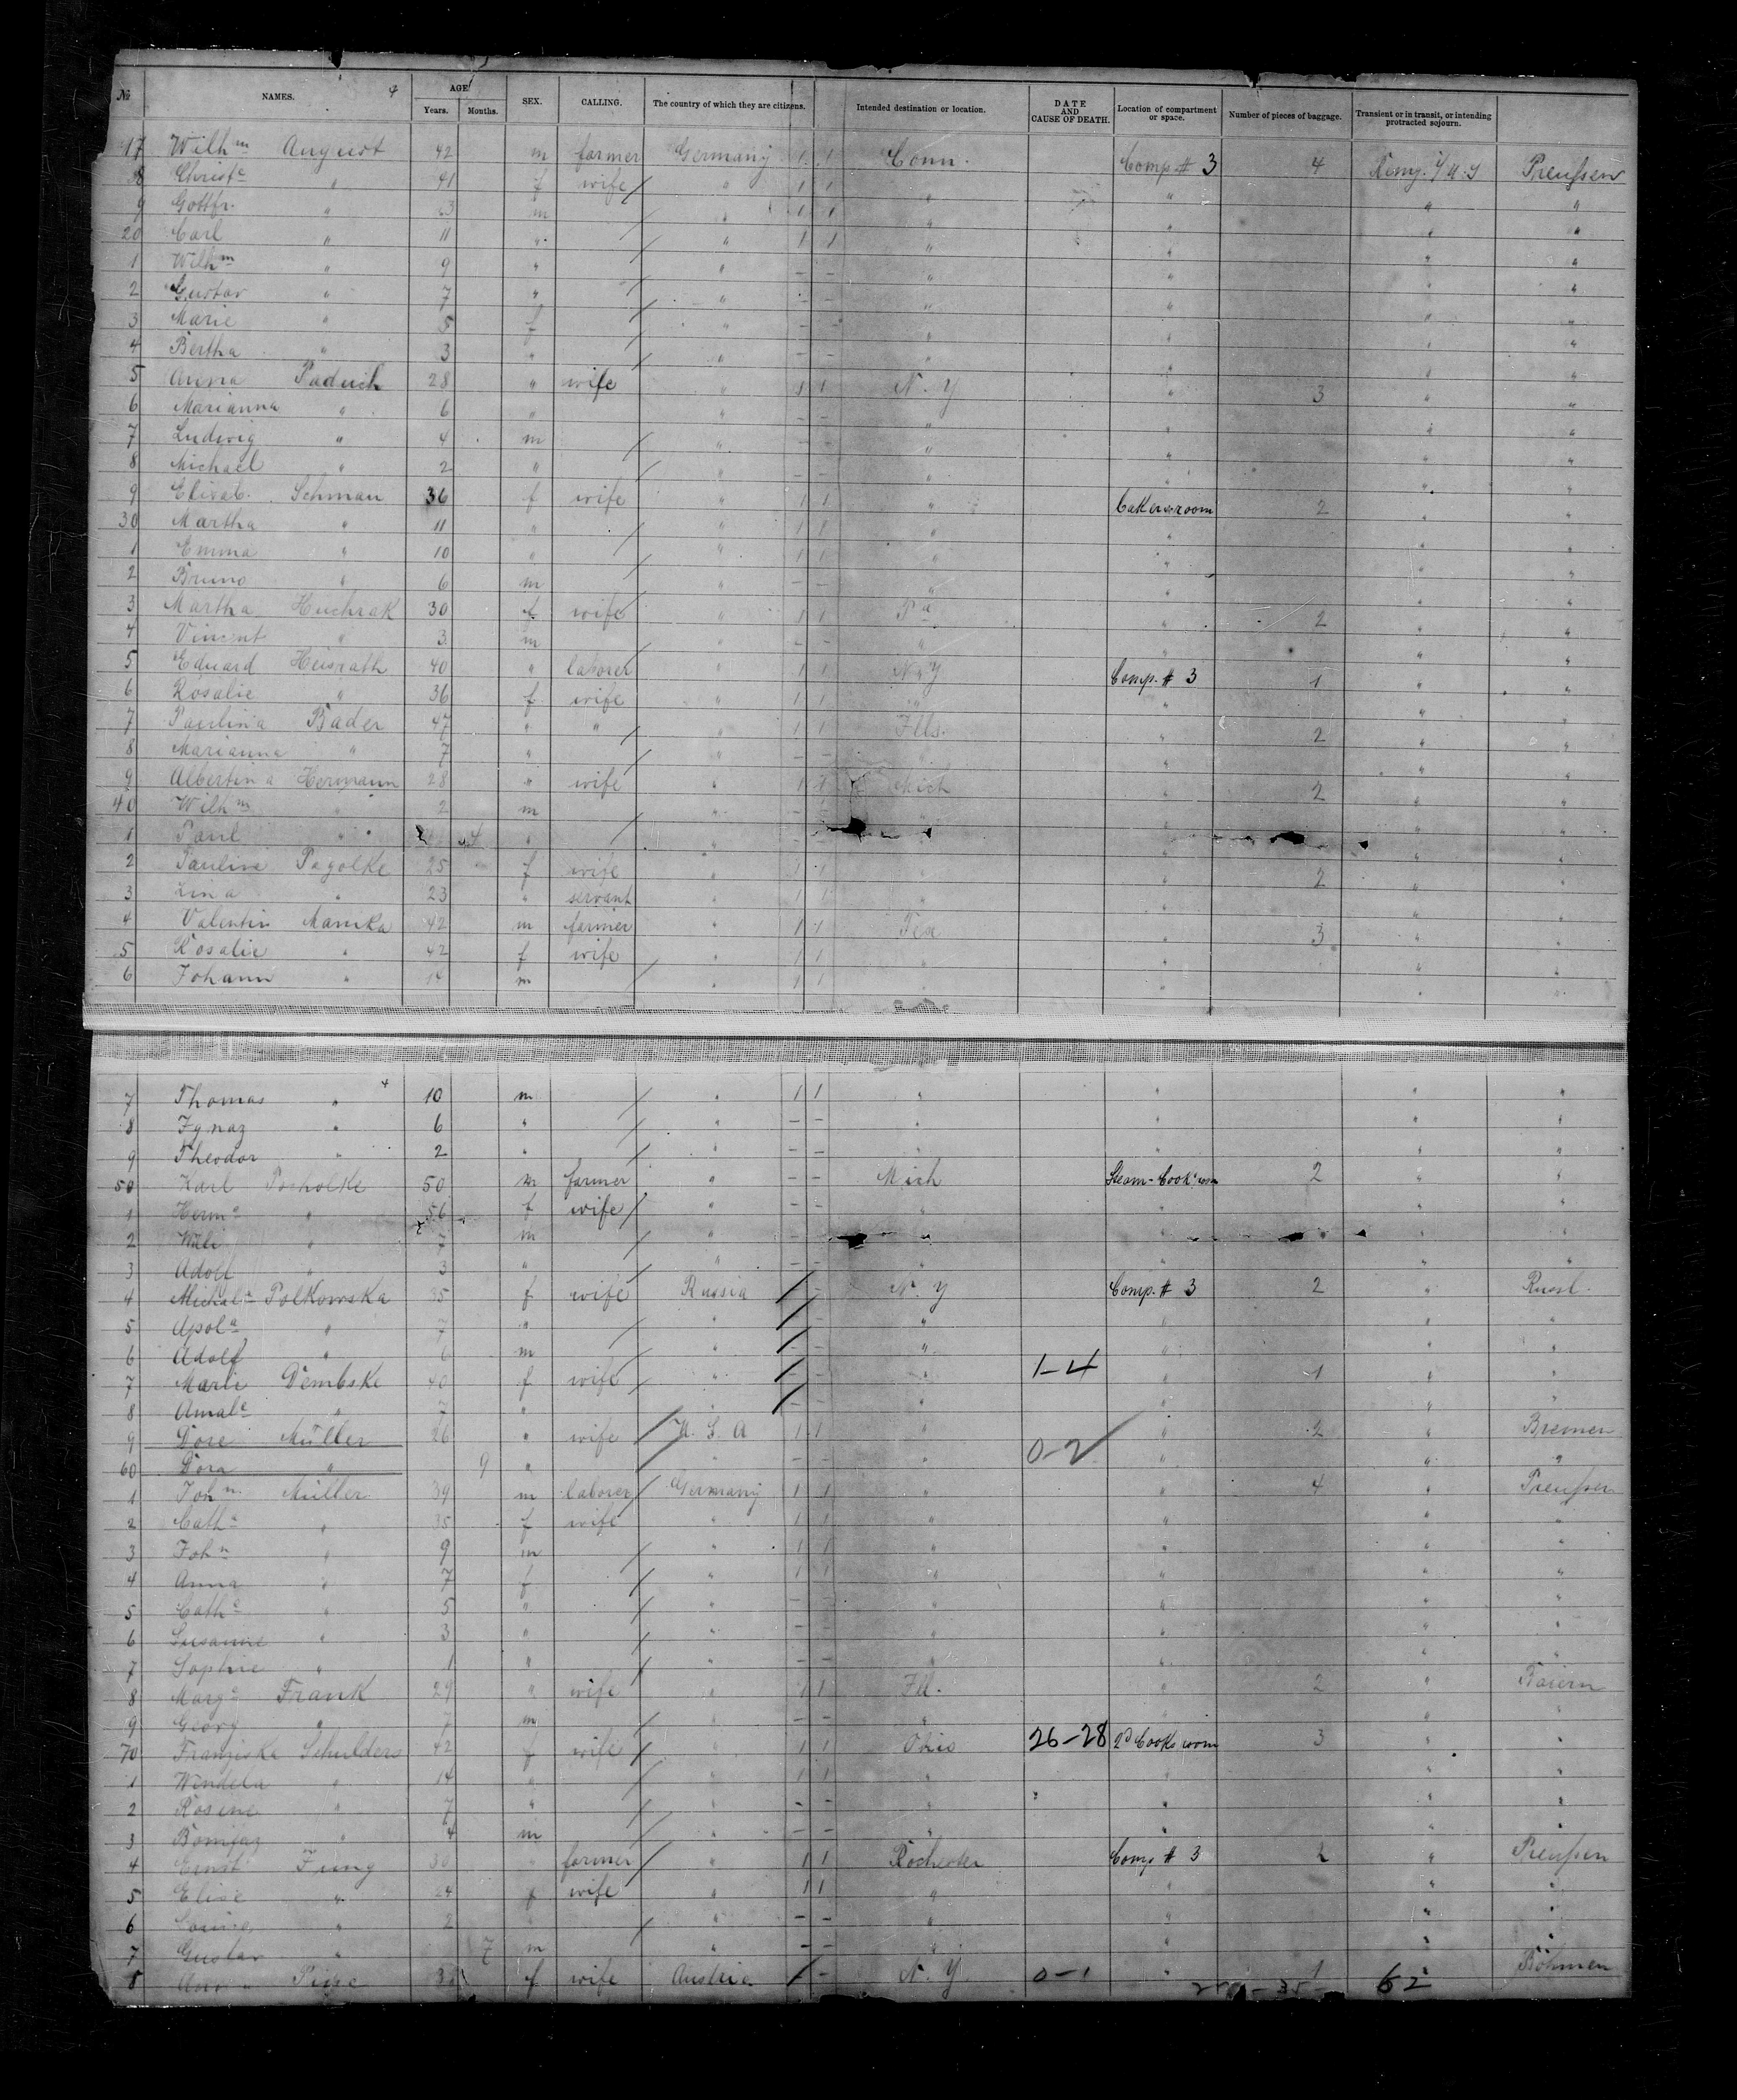 № NAMES. AGE Years. Months. SEX. CALLING. The country of which they are citizens. Intended destination or location. DATE AND CAUSE OF DEATH. Location of compartment or space. Number of pieces of baggage. Transient or in transit, or intending protracted sojourn.
17 Wilhm August 42 m farmer Germany 1 1 Conn. Comp. # 3 4 Preußen
8 Christe " 41 f wife " 1 1 " " " "
9 Gottfr. " m " 1 1 " " " "
20 Carl " 11 " " 1 1 " " " "
1 Wilhm " 9 " " - - " " " "
2 Gustav " 7 " " - - " " " "
3 Marie " 5 f " - - " " " "
4 Bertha " 3 " " - - " " " "
5 Anna Paduch 28 " wife " 1 1 N. Y " 3 " "
6 Marianna " 6 " " - - " " " "
7 Ludwig " 4 m " - - " " " "
8 Michael " 2 " " - - " " " "
9 Elisab. Schman 36 f wife " 1 1 " 2 " "
30 Martha " 11 " " 1 1 " " " "
1 Emma " 10 " " 1 1 " " " "
2 Bruno " 6 m " - - " " " "
3 Martha Huchrak 30 f wife " 1 1 Pa " 2 " "
4 Vincent " 3 m " - - " " " "
5 Eduard Heisrath 40 " laborer " 1 1 N. Y Comp. # 3 1 " "
6 Rosalie " 36 f wife " 1 1 " " " "
7 Paulina Bader 47 " " " 1 1 Ills. " 2 " "
8 Marianna " 7 " " - - " " " "
9 Albertina Hermann 28 " wife " 1 1 Mich " 2 " "
40 Wilhm " 2 m " - - " " " "
1 Paul " 4 " " - - " " " "
2 Paulina Pagolke 25 f wife " 1 1 " " 2 " "
3 Lina " 23 " servant " 1 1 " " " "
4 Valentin Manka 42 m farmer " 1 1 Tex " 3 " "
5 Rosalie " 42 f wife " 1 1 " " " "
6 Johann " 14 m " 1 1 " " " "
7 Thomas " 10 m " 1 1 " " " "
8 Ignaz " 6 " " - - " " " "
9 Theodor " 2 " " - - " " " "
50 Karl Posholke 50 m farmer " - - Mich Steam-Cook's room 2 " "
1 Herme " 56 f wife " - - " " " "
2 Wili " 7 m " - - " " " "
3 Adolf " 3 " " - - " " " "
4 Michale Polkowska 35 f wife Russia - N. Y Comp. # 3 2 " Russl.
5 Apola " 7 " " - " " " "
6 Adolf " 6 m " - - " " " "
7 Marie Dembske 40 f wife " - - " 1-4 " 1 " "
8 Amale " 7 " " - - " " " "
9 Dore Müller 26 " wife U. S. A 1 1 " " 2 " Bremen
60 Dora " 9 " " - - " 0-2 " " "
1 John Müller 39 m laborer Germany 1 1 " " 4 " Preußen
2 Cathe " 35 f wife " 1 1 " " " "
3 John " 9 m " 1 1 " " " "
4 Anna " 7 f " 1 1 " " " "
5 Cathe " 5 " " - - " " " "
6 Susanne " 3 " " - - " " " "
7 Sophie " 1 " " - - " " " "
8 Marge Frank 29 " wife " 1 1 Ill. " 2 " Baiern
9 Georg " 7 m " - - " " " "
70 Franziska Schulders 42 f wife " 1 1 26-28 2d Cooks room 3 " "
1 Wendela " 14 " " 1 1 " " " "
2 Rosine " 7 " " - - " " " "
3 Bonifaz " 4 m " - - " " " "
4 Ernst Jung 30 " farmer " 1 1 Rochester Comp # 3 2 " Preußen
5 Elise " 24 f wife " 1 1 " " " "
6 " 2 " " - - " " " "
7 Gustav " 7 m " - - " " " "
8 f wife Austria - N. Y 0-1 " 1 Böhmen
62